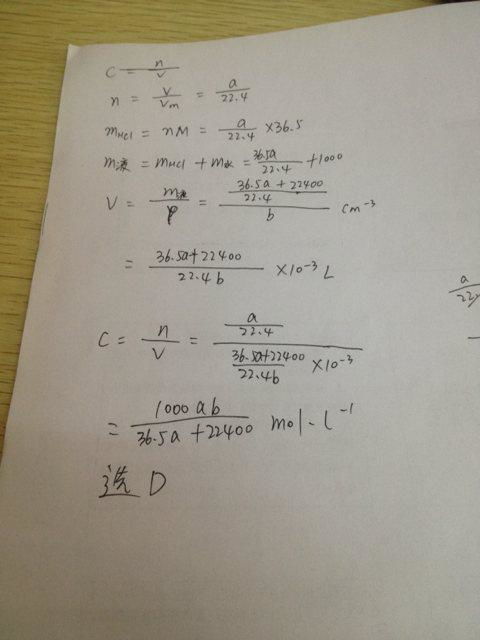 C = n/V
n = V/Vm = a/22.4
mHCl = nM = a/22.4 ×36.5
m液 = mHCl + m水 = 36.5a/22.4 + 1000
V = m液/ρ = (36.5a + 22400)/22.4 / b cm⁻³
= (36.5a+22400)/22.4b ×10⁻³ L
C = n/V = (a/22.4)/((36.5a+22400)/22.4b ×10⁻³)
= 1000ab/(36.5a+22400) mol·L⁻¹
选 D
a/22